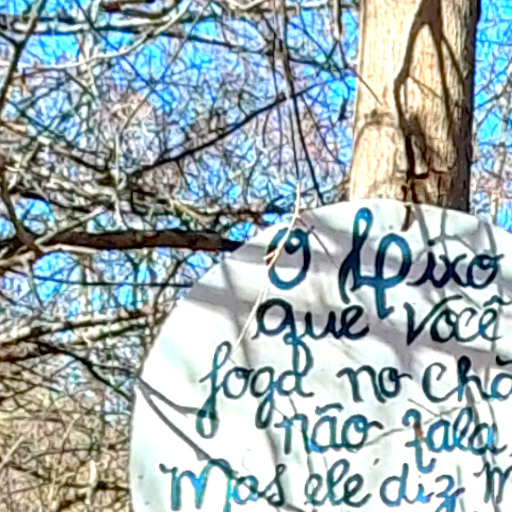 O Lixo
que você
joga no chã
não fala,
Mas ele diz M